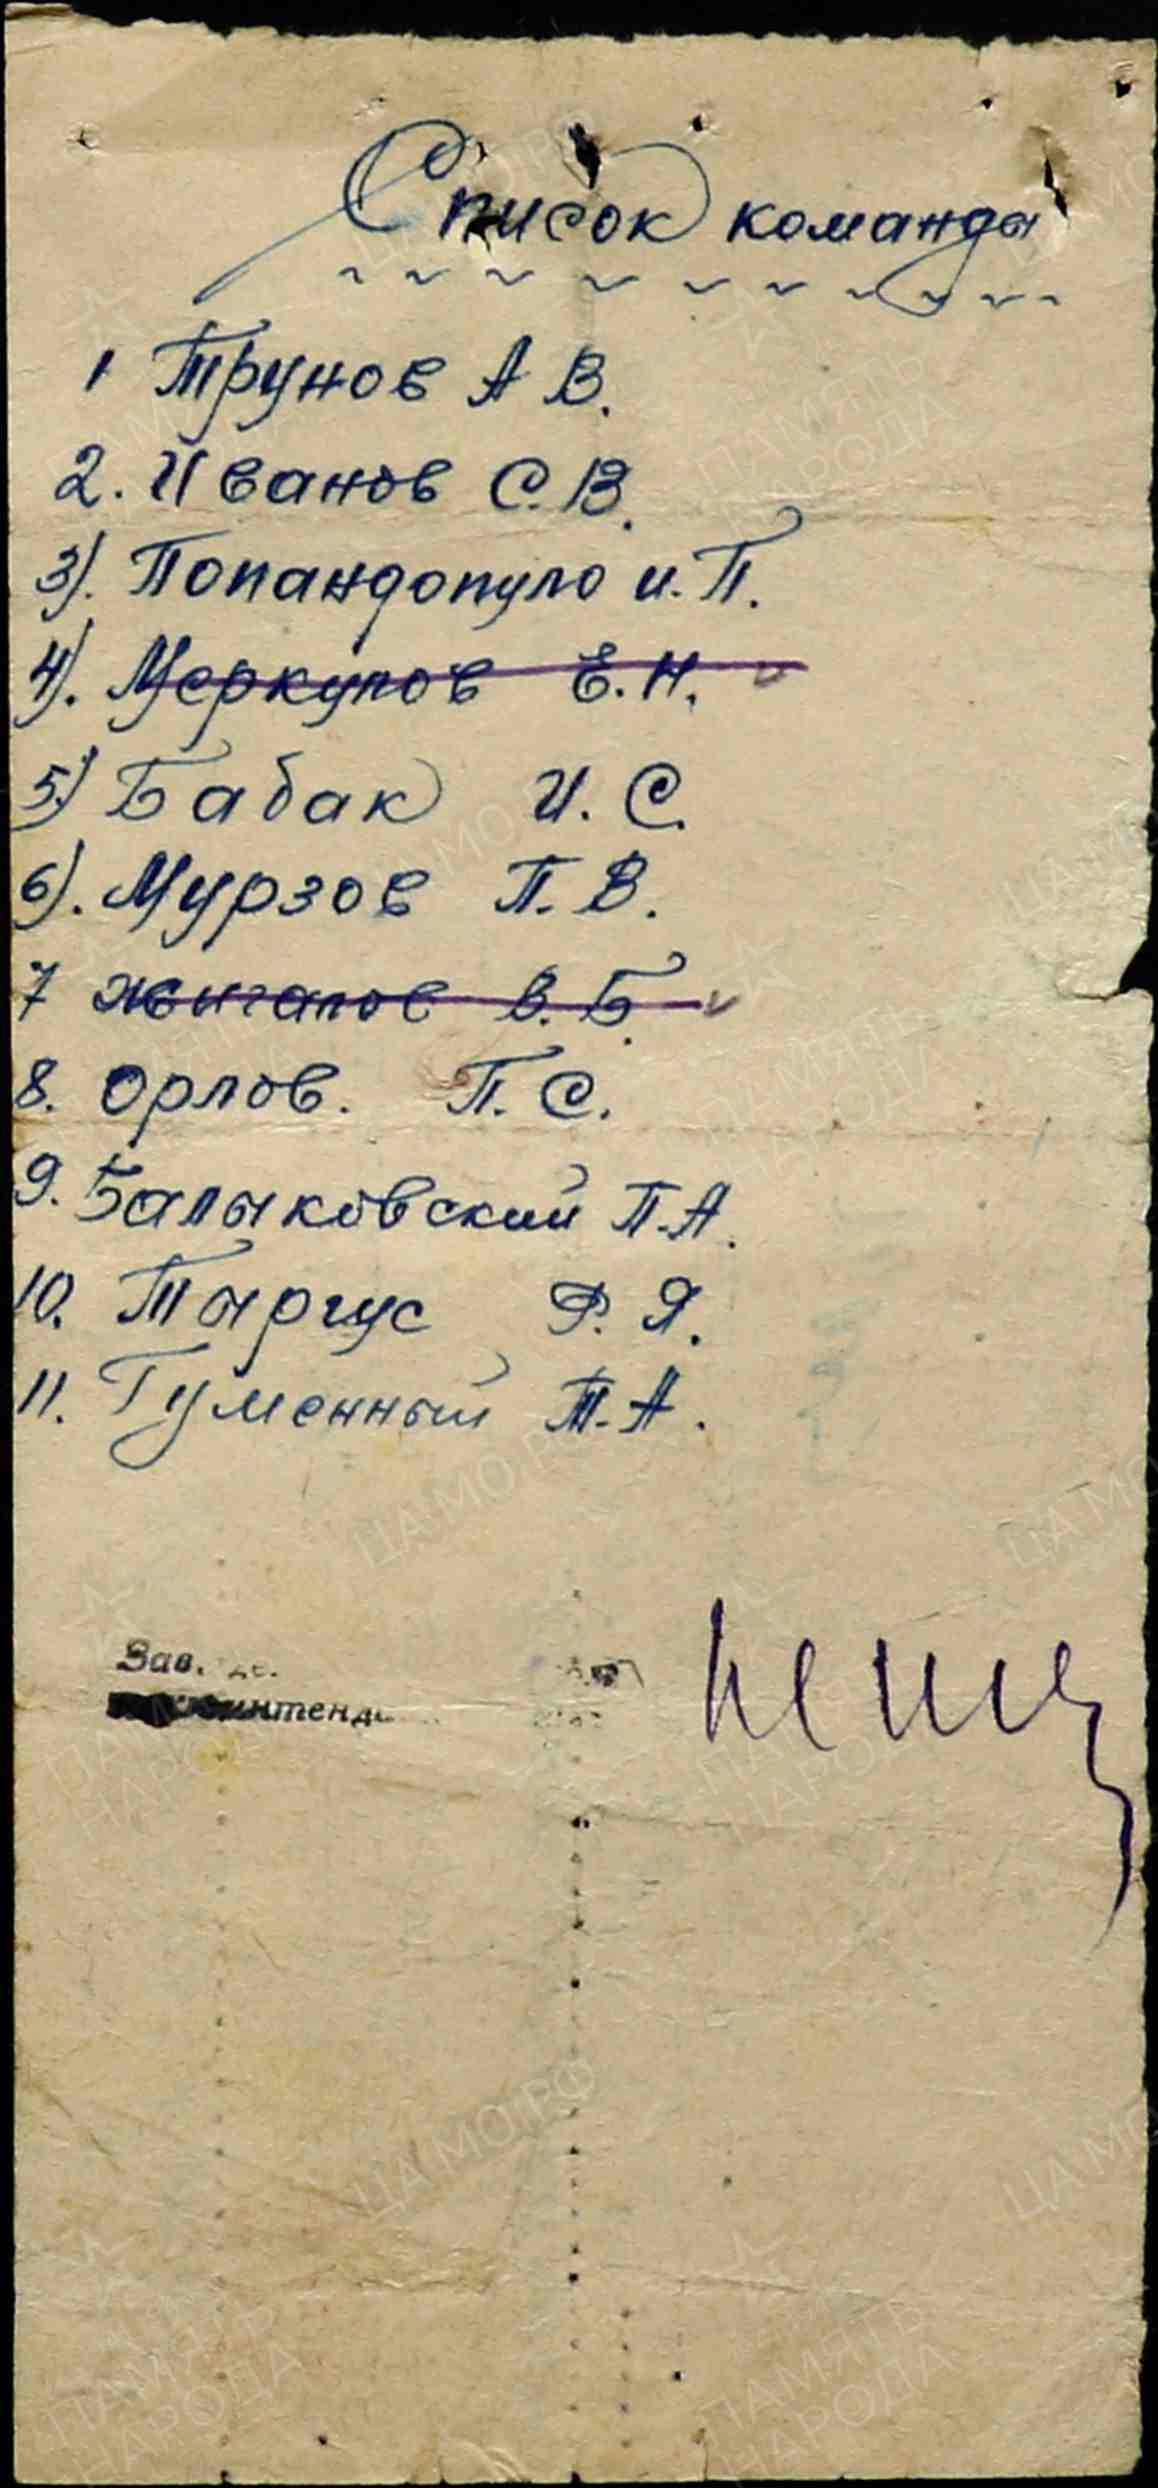 Список команды
1 Трунов А В.
2. Иванов С. В.
3). Попандопуло И. П.
4). Меркулов Е. Н.
5.) Бабак И. С.
6). Мурзов П. В.
7 Жвигалов В. Б.
8. Орлов. П. С.
9. Балыковский П. А.
10. Тыргус Ф. Я.
11. Гуменный Т. А.
Зав.